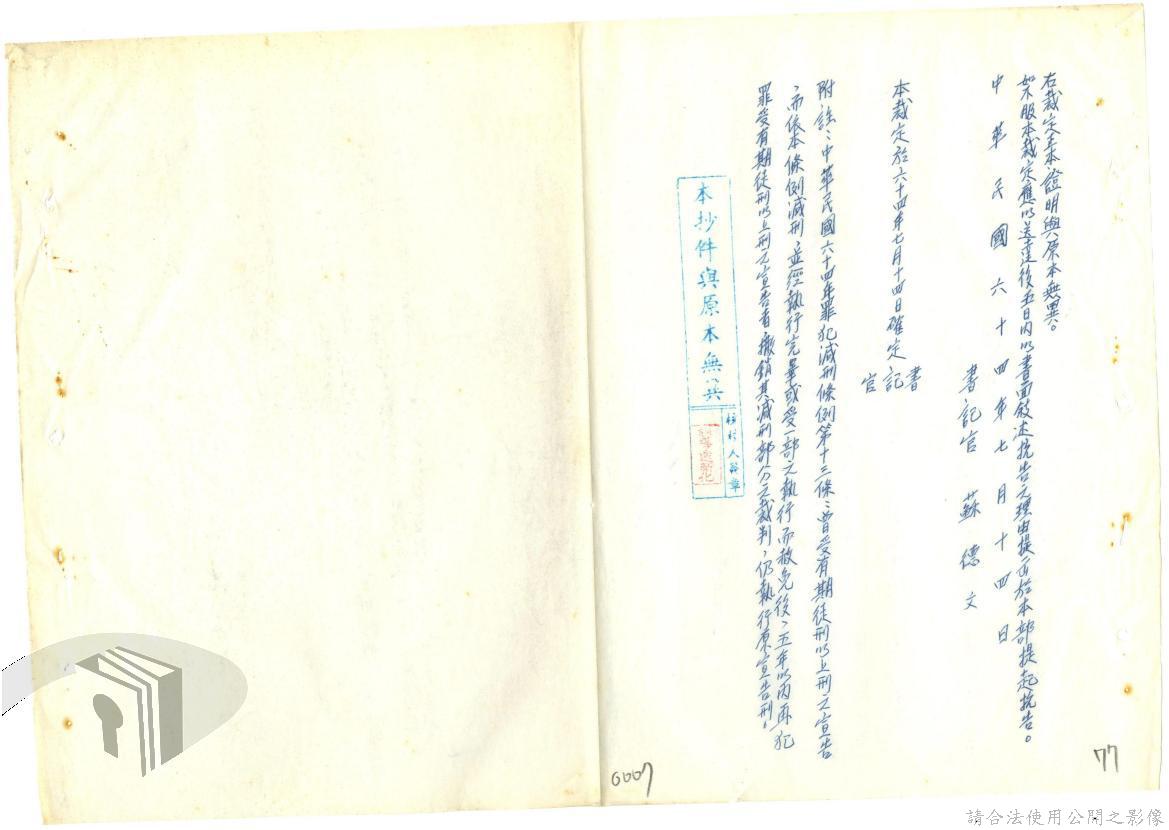 右裁定正本證明與原本無異。
如不服本裁定應以送達後五日內以書面敘述抗告之理由提出於本部提起抗告。
中華民國六十四年七月十四日
書記官 蘇德文
本裁定於六十四年七月十四日確定
書記官
附註：中華民國六十四年罪犯減刑條例第十三條：曾受有期徒刑以上刑之宣告
，而依本條例減刑，並經執行完畢或受一部之執行而赦免後，五年以內再犯
罪受有期徒刑以上刑之宣告者，撤銷其減刑部分之裁判，仍執行原宣告刑。
本抄件與原本無異
校對人簽章
0007
77
請合法使用公開之影像